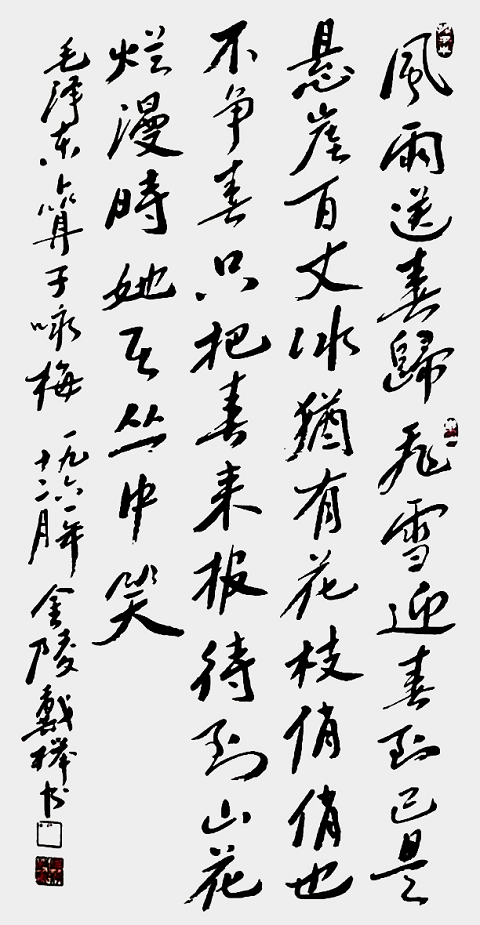 風雨送春歸飛雪迎春到已是
悬崖百丈冰猶有花枝俏俏也
不争春只把春来报待到山花
烂漫時她在丛中笑
毛泽东卜算子咏梅
一九六一年
十二月
金陵戴榉书